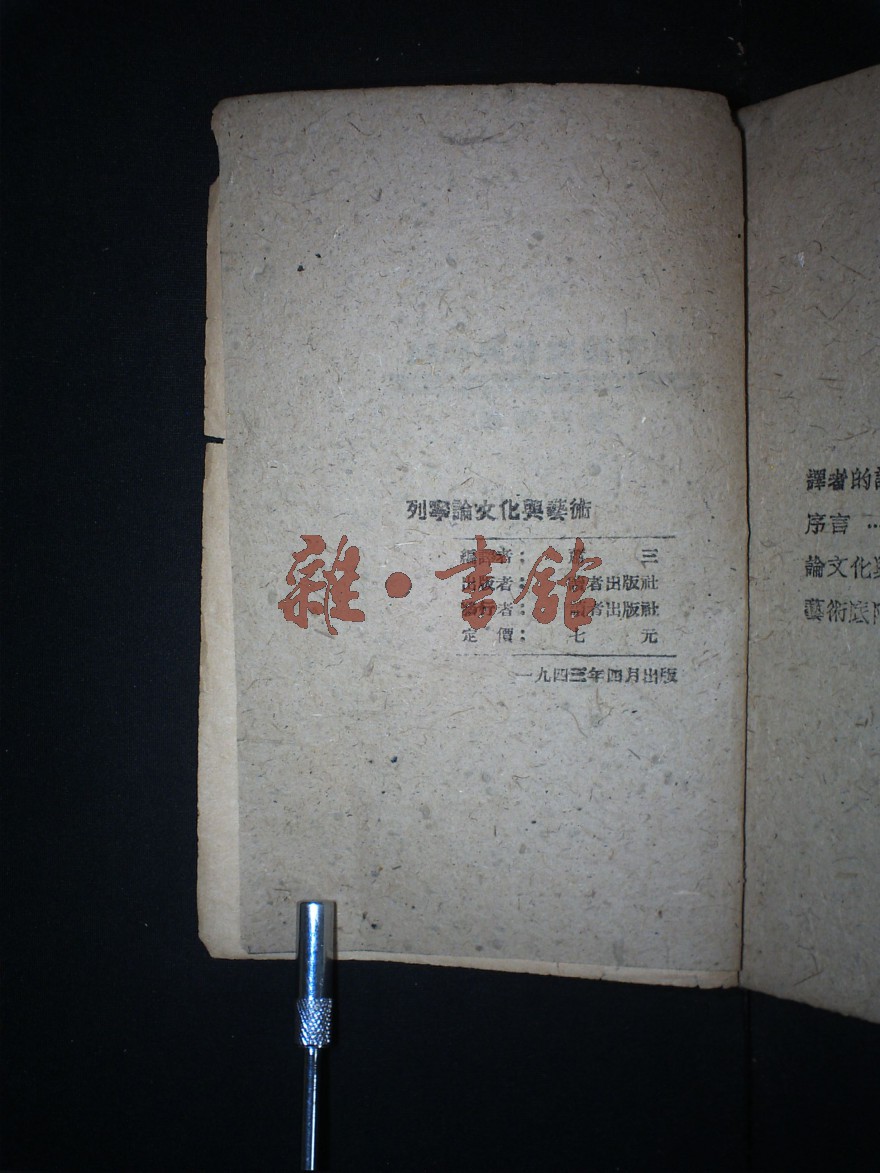 列寧論文化與藝術
編譯者： 蕭 三
出版者： 讀者出版社
發行者： 讀者出版社
定 價： 七 元
一九四三年四月出版
雜·書館
譯者的
序言 …
論文化與
藝術